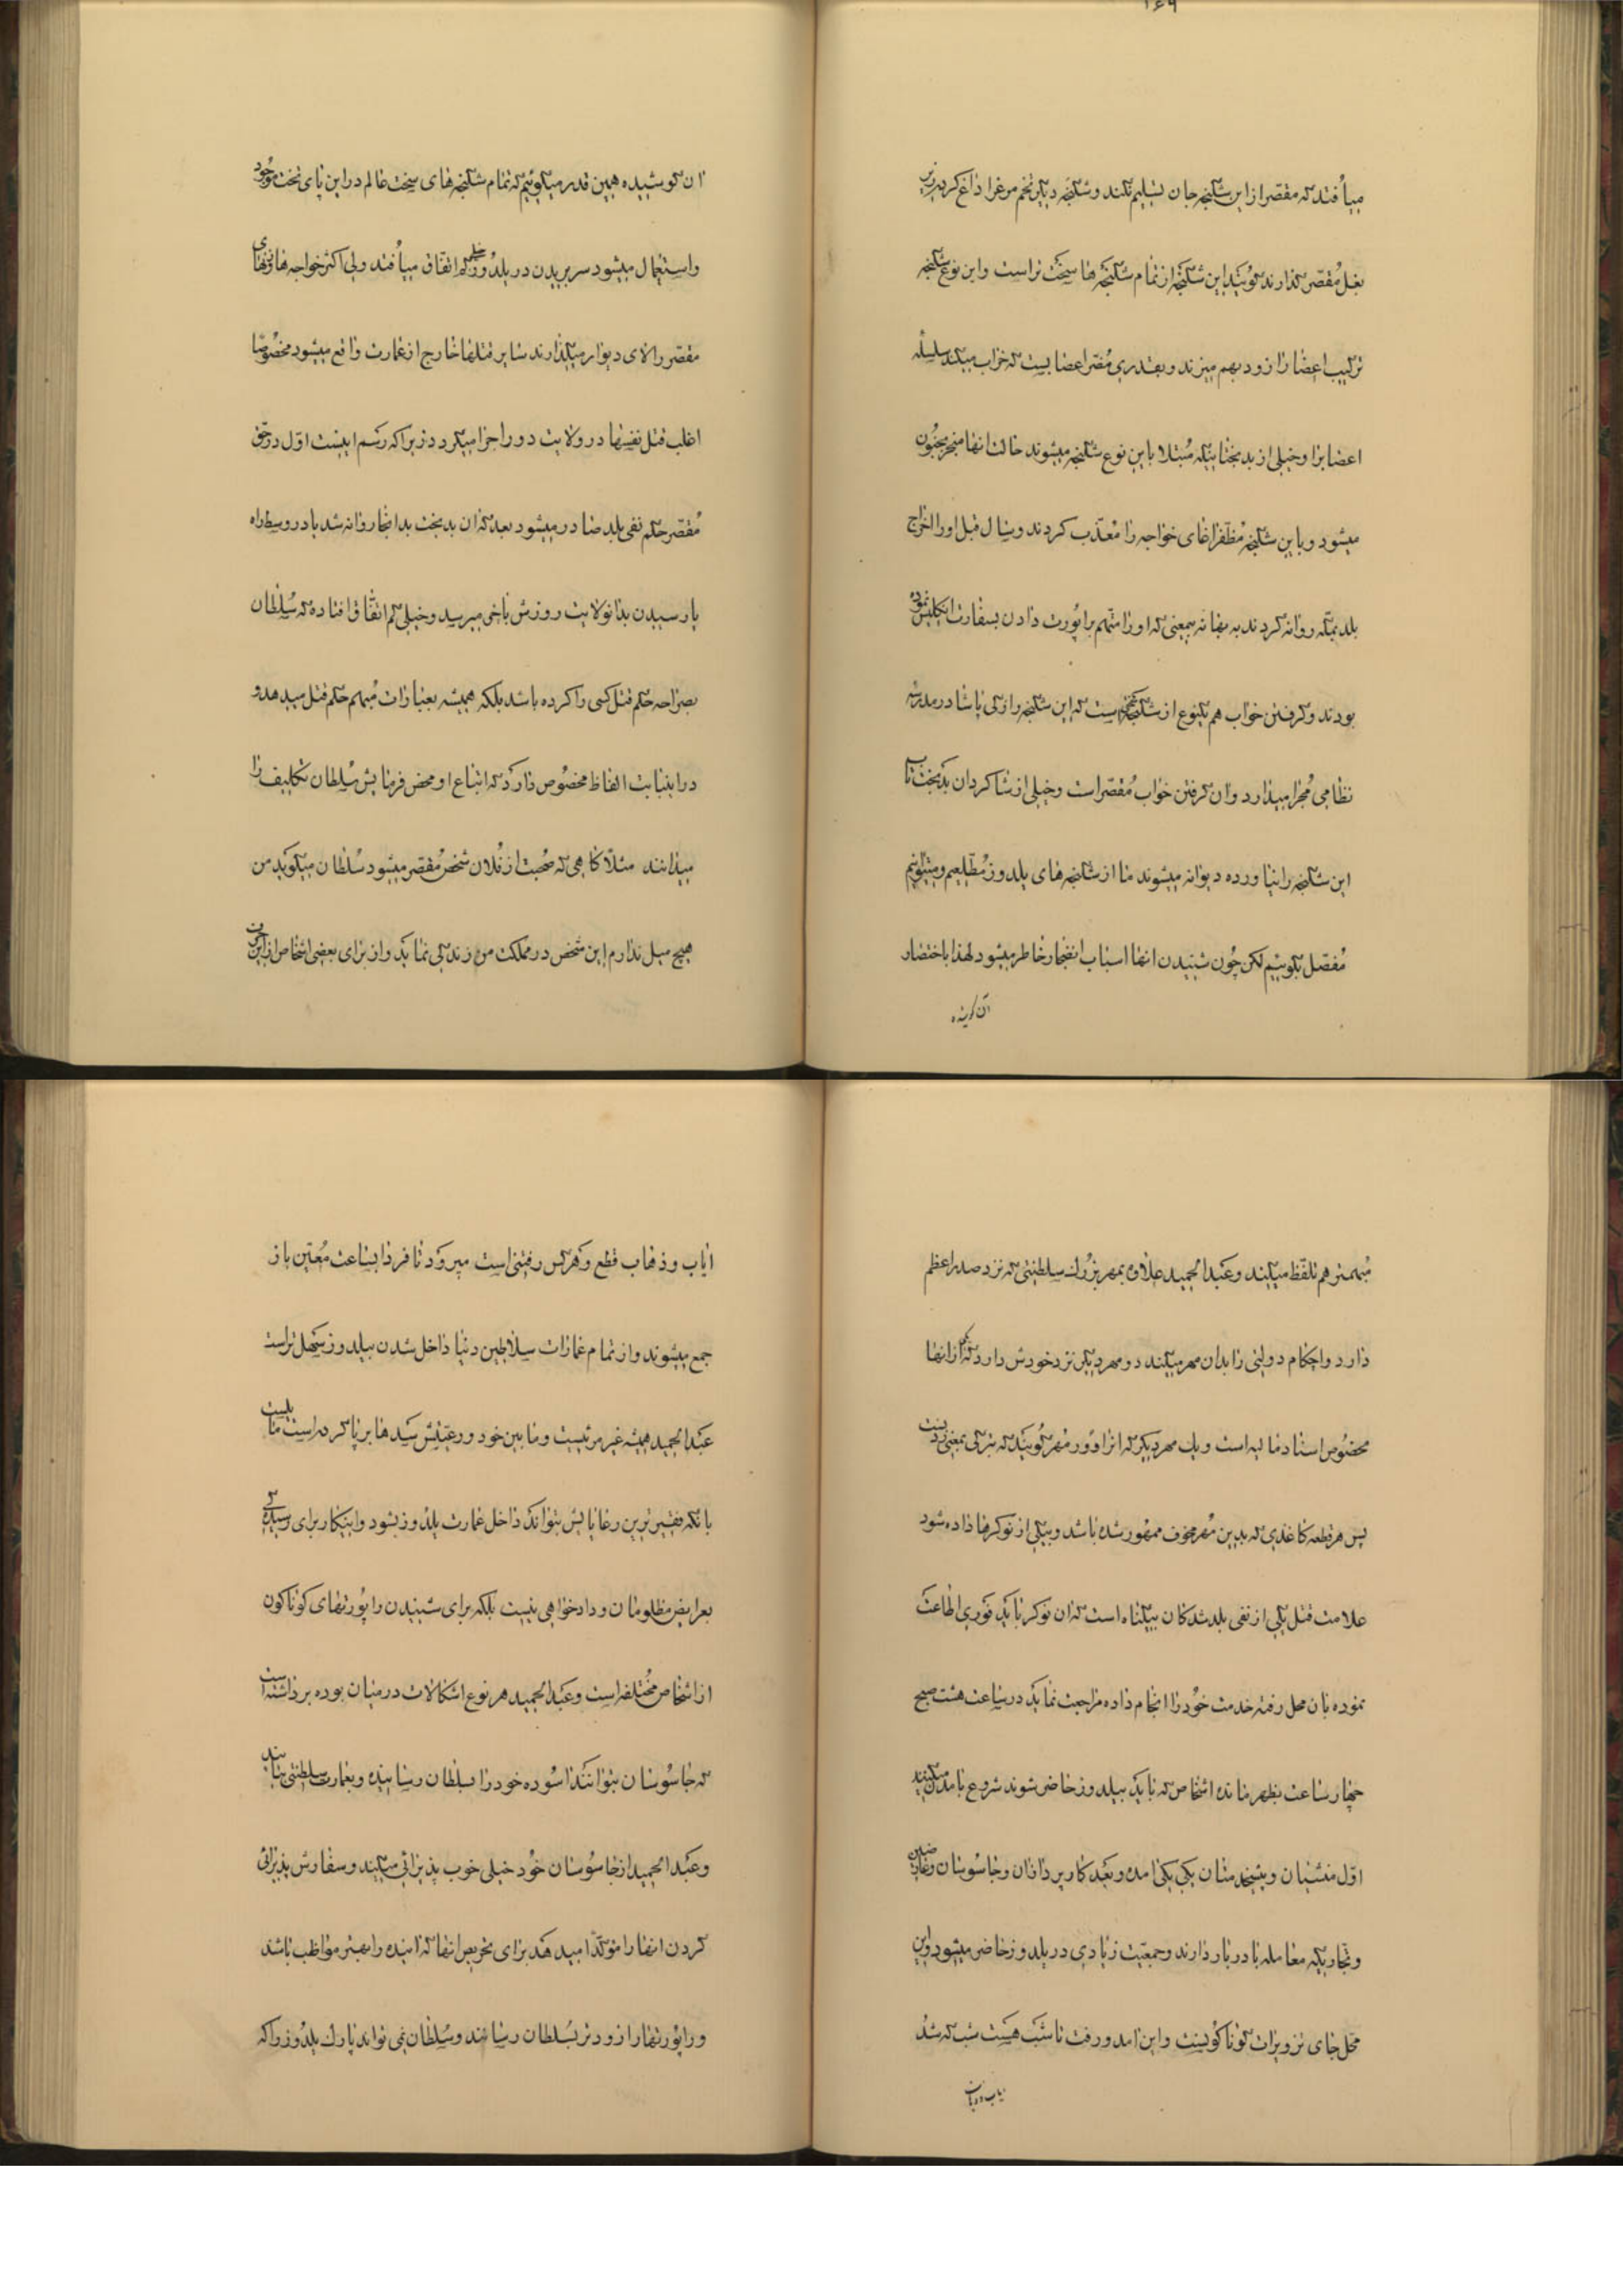 ۱۶۹
میاُفتد که مقصر از این شکنجه جان تسلیم نکند و شکنجه دیگر تخم مرغ را داغ کرده زیر
بغل مُقصر گذارند گویند این شکنجه از تمام شکنجه ها سخت تر است و این نوع شکنجه
ترکیب اعضا را زود بهم میزند و بقدری مُضر اعضا بیست که خراب میکند سلسله
اعضا برا و خیلی از بدبختانیکه مُبتلا باین نوع شکنجه میشوند حالت انها منجر بجنُون
میشود و باین شکنجه مُظفر اغای خواجه را مُعذّب کردند و سال قبل او را اخراج
بلد بمکه روانه کردند به بهانه بمعنی که او را متهم براپُورت دادن بسفارت انگلیس نموده
بودند و گرفتن خواب هم یکنوع از شکنجه است که این شکنجه را زکی پاشا در مدرسه
نظامی مُجرا میدارد و ان گرفتن خواب مُقصر است و خیلی از شاگردان بدبخت تاب
این شکنجه را نیاورده دیوانه میشوند ما از شکنجه های یلدوز مُطّلعیم و میتوانیم
مُفصّل بگوئیم لکن چُون شنیدن انها اسباب انضجار خاطر میشود لهذا باختصار
ان کوشیده
ان کوشیده همین قدر میگوئیم که تمام شکنجه های سخت عالم در این پای تخت موجُود
و استعمال میشود سر بریدن در یلدُوز خیلی کم اتفاق میاُفتد ولی اکثر خواجه ها و زنهای
مقصر را لای دیوار میگذارند سایر قتلها خارج از عمارت واقع میشود مخصُوصًا
اغلب قتل نفسها در ولایت دور اجرا میگردد زیرا که رسم اینست اوّل در حق
مُقصّر حکم نفی بلد صادر میشود بعد که ان بدبخت بدانجا روانه شد یا در وسط راه
یا رسیدن بدانولایت روزش باخر میرسد و خیلی کم اتفاق افتاده که سُلطان
بصراحه حکم قتل کسی را کرده باشد بلکه همیشه بعبارات مُبهم حکم قتل میدهد و
در اینبابت الفاظ مخصُوص دارد که اتباع او محض فرمایش سُلطان تکالیف را
میدانند مثلاً گاهی که صُحبت از فُلان شخص مُقصر میشود سُلطان میگوید من
هیچ میل ندارم این شخص در مملکت من زندگی نماید و از برای بعضی اشخاص از این حرف
مُبهمتر هم تلفظ میکند و عبدالحمید علاوه بمهر بزرک سلطنتی که نزد صدراعظم
دارد و احکام دولتی را بدان مهر میکند دو مهر دیگر نزد خودش دارد که یکی از انها
مخصُوص اسناد مالیه است و یک مهر دیگر که انرا اوُور مُهر گُویند که بترکی بمعنی
پس هر قطعه کاغذی که بدین مُهر مخوف ممهور شده باشد و بیکی از نوکرها داده شود
علامت قتل یکی از نفی بلد شدکان بیگناه است که ان نوکر باید فوری اطاعت
نموده بان محل رفته خدمت خود را انجام داده مراجعت نماید در ساعت هشت صبح
چهار ساعت بظهر مانده اشخاص که باید بیلدوز حاضر شوند شروع بامدن میکنند
اوّل منشیان و پیشخدمتان یکی یکی امده و بعد کارپردازان و جاسُوسان
و تجاریکه معامله با دربار دارند و جمعیّت زیادی در یلدوز حاضر میشود و این
محل جای تزویرات گوناگونست و این امد و رفت تا شب هست شب که شد
ایاب و ذهاب
ایاب و ذهاب قطع و هر کس رفتنی است میرود تا فردا بساعت مُعیّن باز
جمع میشوند و از تمام عمارات سلاطین دنیا داخل شدن بیلدوز سهل تر است
عبدالحمید همیشه غیر مرئیست و مابین خود و رعیّتش سدها برپا کرده است
بانکه فقیرترین رعایایش بتواند داخل عمارت یلدوز بشود و اینکار برای رسیدگی
بعرایض مظلومان و دادخواهی نیست بلکه برای شنیدن راپُورتهای کوناکون
از اشخاص مُختلفه است و عبدالحمید هر نوع اشکالات در میان بوده برداشته است
که جاسُوسان بتوانند اسُوده خود را بسلطان رسانیده و بعمارت سلطنتی بیایند
و عبدالحمید از جاسُوسان خُود خیلی خوب پذیرائی میکند و سفارش پذیرائی
کردن انها را مؤکدا میدهد برای تحریص انها که اینده را بهتر مواظب باشند
و راپُورتها را زودتر بسُلطان رسانند و سُلطان نمی تواند پارک یلدُوز را که